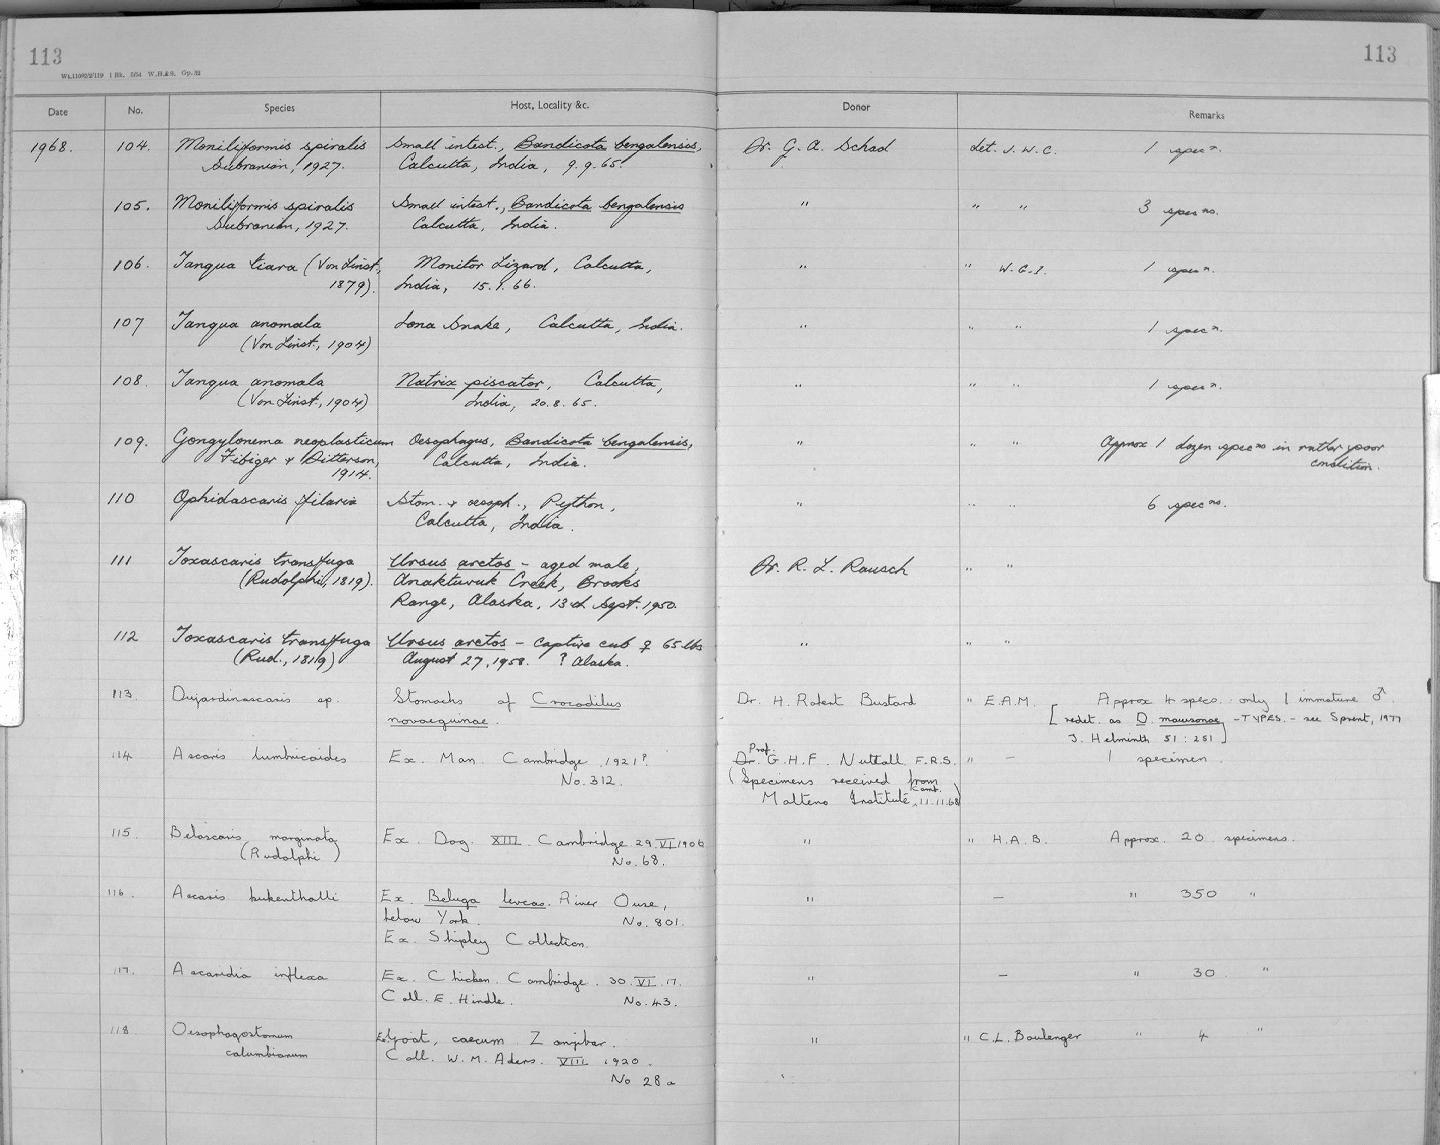 113
113
Wt.11092/2/119 1 Bk. 5/54 W.H.&S. Gp.812
Date No. Species Host, Locality &c. Donor Remarks
1968. 104. Moniliformis spiralis Small intest., Bandicota bengalensis, Dr. G. A. Schad det. J.W.C. 1 specn.
Subranian, 1927. Calcutta, India, 9.9.65.
105. Moniliformis spiralis Small intest., Bandicota bengalensis " " " 3 specns.
Subranian, 1927. Calcutta, India.
106. Tanqua tiara (Von Linst., Monitor Lizard, Calcutta, " " W.G.I. 1 specn.
1879). India, 15.9.66.
107 Tanqua anomala Lona Snake, Calcutta, India. " " " 1 specn.
(Von Linst., 1904)
108. Tanqua anomala Natrix piscator, Calcutta, " " " 1 specn.
(Von Linst., 1904) India, 20.8.65.
109. Gongylonema neoplasticum Oesophagus, Bandicota bengalensis, " " " Approx 1 dozen specns in rather poor
Fibiger & Ditterson, Calcutta, India. condition.
1914.
110 Ophidascaris filaria Stom. & oesoph., Python, " " " 6 specns.
Calcutta, India.
111 Toxascaris transfuga Ursus arctos - aged male, Dr. R. L. Rausch " "
(Rudolphi, 1819). Anaktuvuk Creek, Brooks
Range, Alaska, 13th Sept. 1950.
112 Toxascaris transfuga Ursus arctos - captive cub ♀ 65 lbs " " "
(Rud., 1819) August 27, 1958. ? Alaska.
113. Dujardinascaris sp. Stomachs of Crocodilus Dr. H. Robert Bustard " E.A.M. Approx 4 specs. only 1 immature ♂.
novaeguinae. [redet. as D. mawsonae - TYPES. - see Sprent, 1977
J. Helminth 51: 251]
114 Ascaris lumbricoides Ex. Man. Cambridge 1921? Dr. Prof. G.H.F. Nuttall F.R.S. " - 1 specimen.
No. 312. (Specimens received from
Molteno Institute, Camb. 11.11.68)
115. Belascaris marginata Ex. Dog. XIII. Cambridge 29.VI.1906 " " H.A.B. Approx. 20 specimens.
(Rudolphi) No. 68.
116. Ascaris kukenthalli Ex. Beluga leucas. River Ouse, " - " 350 "
below York. No. 801.
Ex. Shipley Collection.
117. Ascaridia inflexa Ex. Chicken. Cambridge. 30.VI.17. " - " 30. "
Coll. E. Hindle. No. 43.
118 Oesophagostomum Ex. Goat, caecum. Zanjibar. " " C.L. Boulenger " 4 "
columbianum Coll. W.M. Aders. VIII. 1920.
No 28a